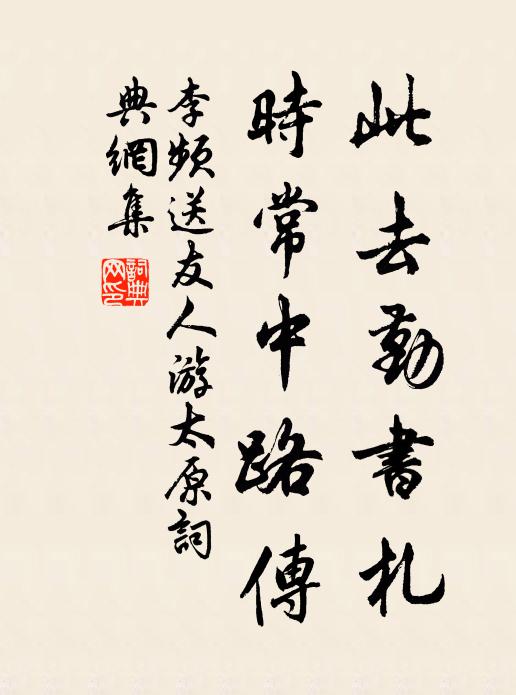 此去勤書札
時常中路傳
李頻送友人游太原詞
典網集
詞典網印